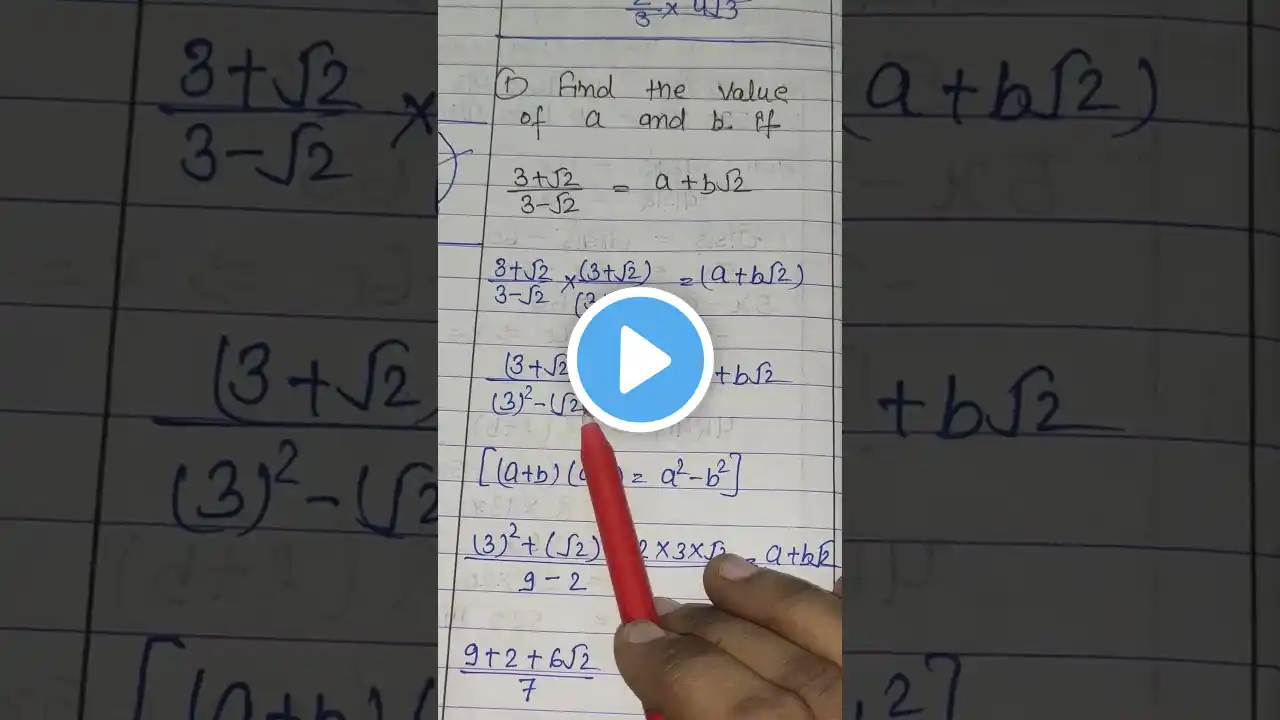 2/3 × 4√3
① Find the value
of a and b. if
3+√2/3-√2 = a+b√2
3+√2/3-√2 × (3+√2)/(3 = (a+b√2)
(3+√2/(3)²-(√2 +b√2
[(a+b) ( ) = a²-b²]
(3)²+(√2) 2×3×√2/9-2 = a+b√2
9+2+6√2/7